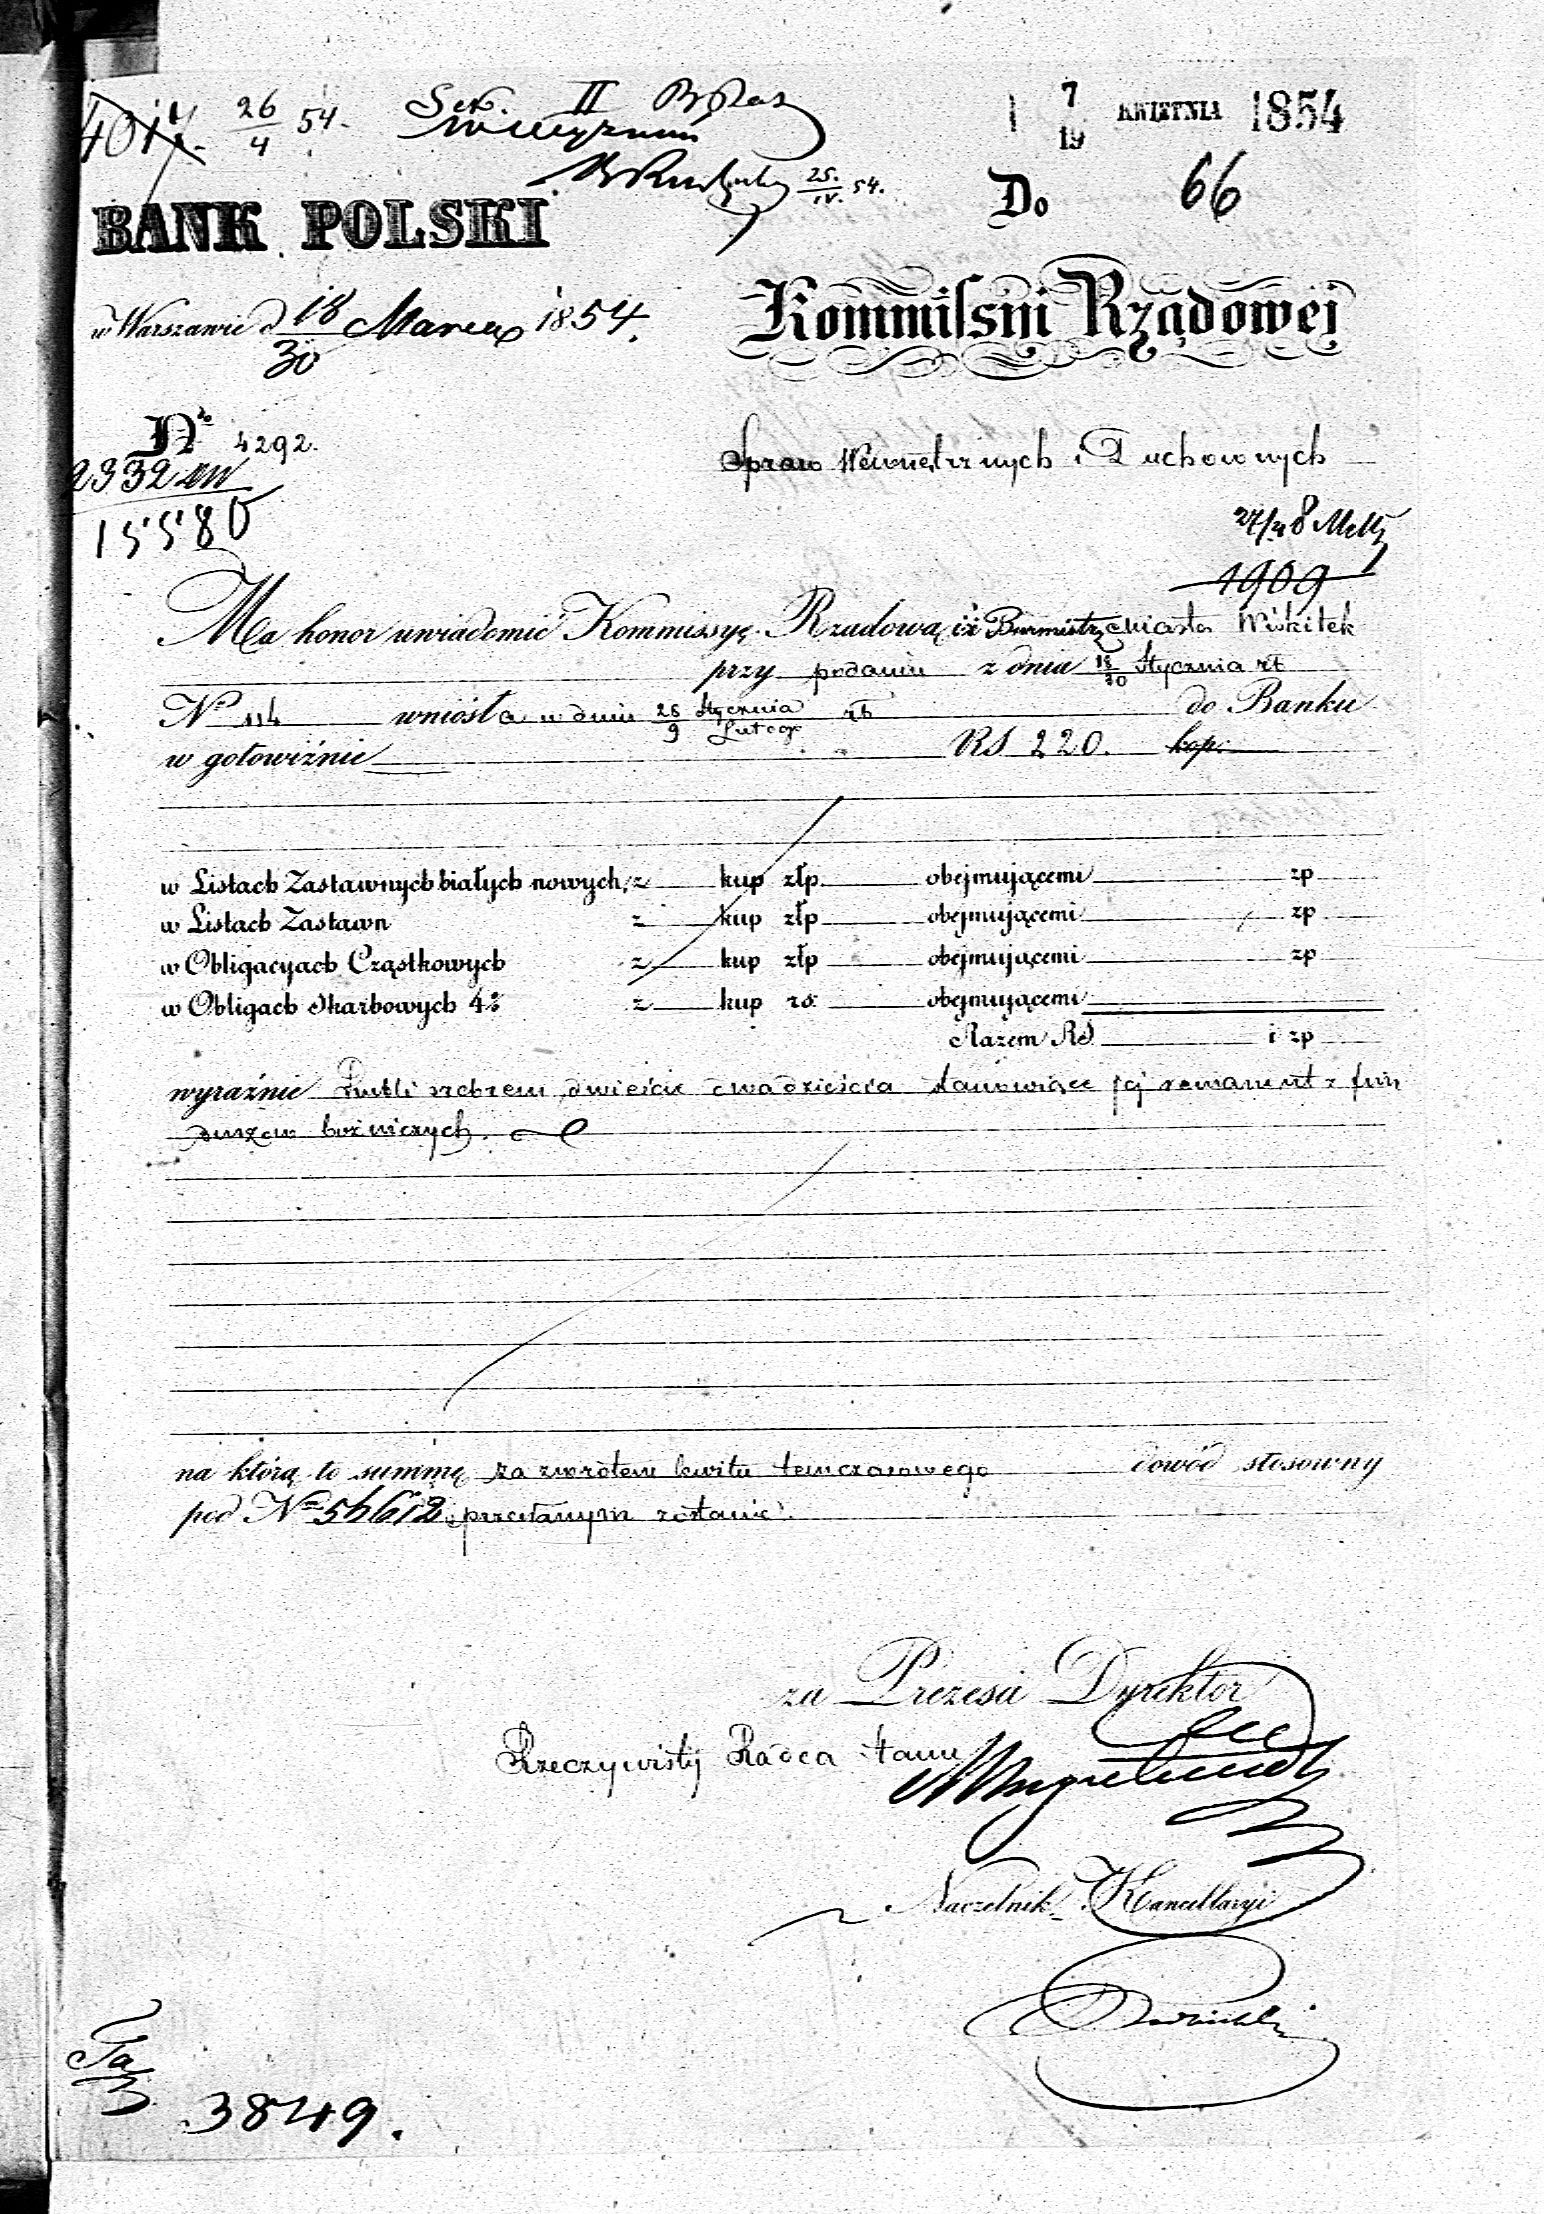 4017. 26/4 54. Sek. II
25./IV. 54.
7/19 KWIETNIA 1854
BANK POLSKI
Do 66
w Warszawie d 18/30 Marca 1854.
Kommissyi Rządowej
No 4292.
Spraw Wewnętrznych i Duchownych
2332
15580
1909
Ma honor uwiadomić Kommissyę Rządową iż Burmistrz Miasta Wiskitek
przy podaniu z dnia 18/30 Stycznia rb
No 114 wniósł a w dniu 28 Stycznia/9 Lutego rb do Banku
w gotowiźnie RS 220. kop:
w Listach Zastawnych białych nowych, z kup złp. obejmującemi zp
w Listach Zastawn z kup złp obejmującemi zp
w Obligacyach Cząstkowych z kup złp obejmującemi zp
w Obligach Skarbowych 4% z kup rs: obejmującemi
Razem RS i zp
wyraźnie Rubli srebrem dwieście dwadzieścia stanowiące jej remanent z fun
duszów bożniczych.
na którą to summę za zwrotem kwitu temczasowego dowód stosowny
pod No 54612 przesłanym zostanie.
za Prezesa Dyrektor
Rzeczywisty Radca Stanu
Naczelnik Kancellaryi
3849.